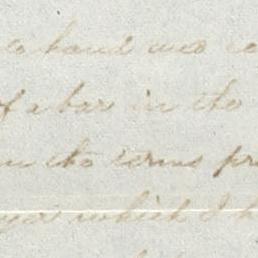 to hand was re
of a bar in the
in the terms pr
which I h